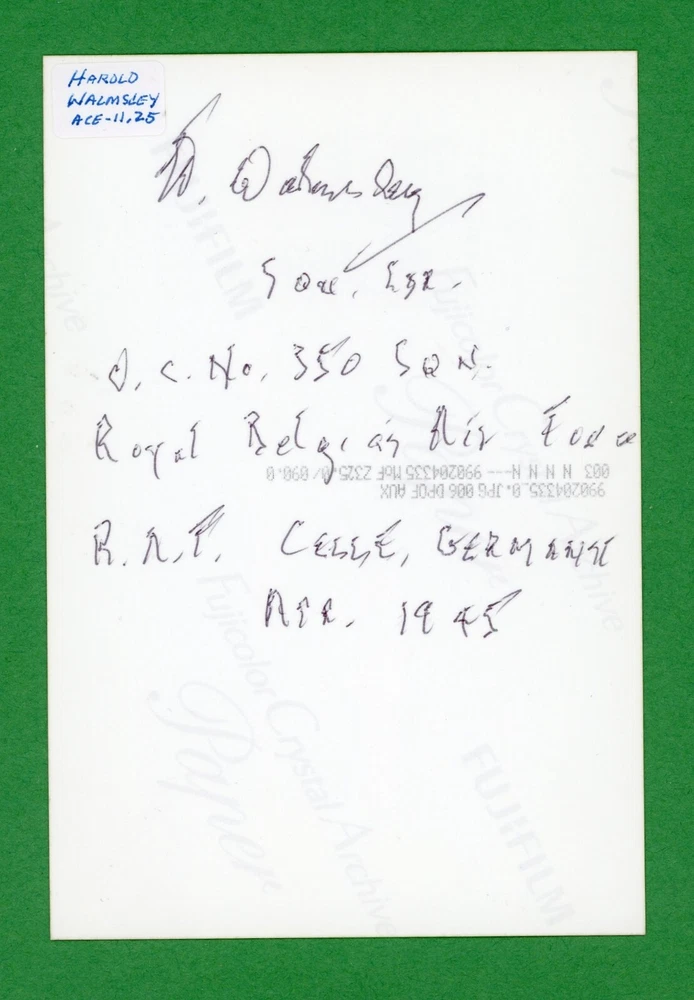 HAROLD
WALMSLEY
ACE-11.25
H. Walmsley
Sqn. Ldr.
O.C. No. 350 SQN.
Royal Belgian Air Force
003 N N N N --- 990204335 MoF Z325 0/ 090.0
990204335_0.JPG 006 DPOF AUX
R.A.F. CELLE, GERMANY
APR. 1945
FUJIFILM
Fujicolor Crystal Archive
Paper
Fujicolor Crystal Archive
Paper
FUJIFILM